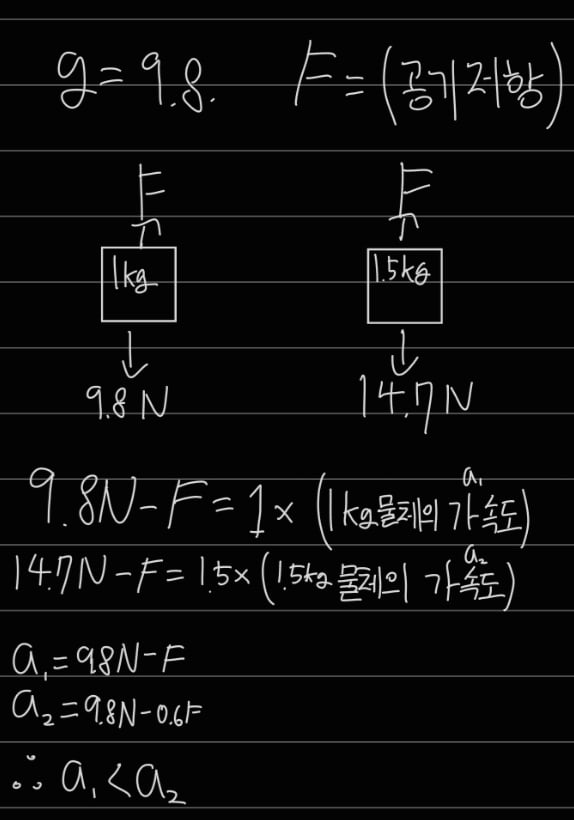 g=9.8. F=(공기저항)
F F
1kg 1.5kg
9.8N 14.7N
a₁
9.8N-F=1×(1kg물체의 가속도)
a₂
14.7N-F=1.5×(1.5kg물체의 가속도)
a₁=9.8N-F
a₂=9.8N-0.6F
∴ a₁<a₂